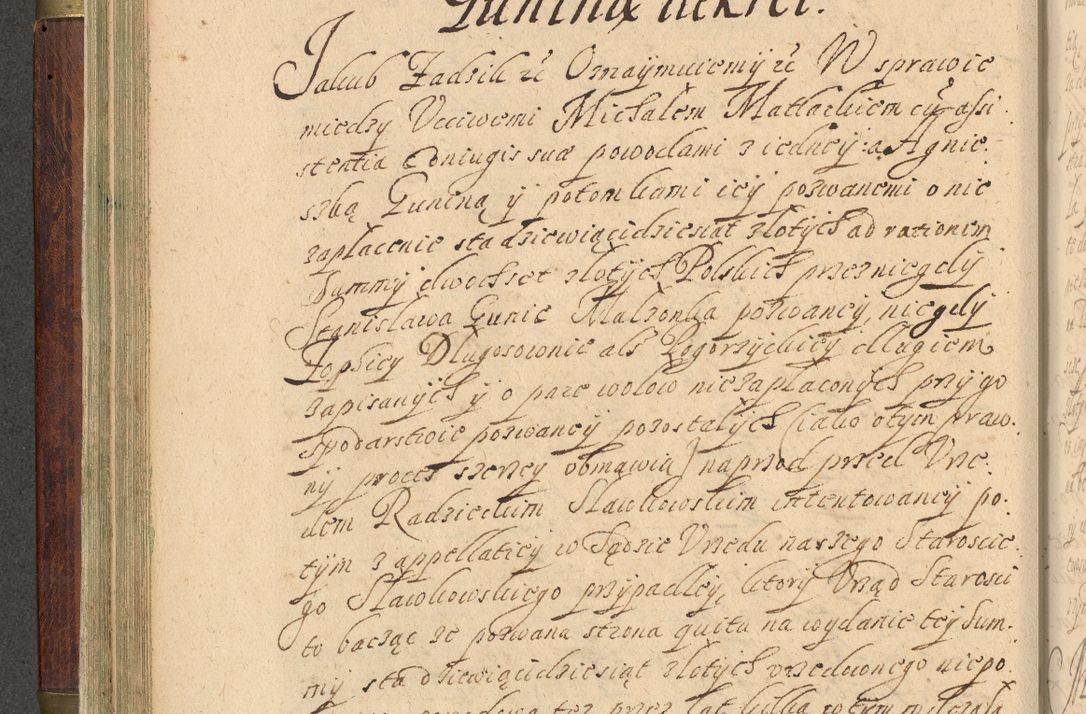 Guniną dekret.
Jakub Zadzik etc Oznaymuiemy iż W sprawie
miedzy Vcciwemi Michałem Matlackiem cu assi
stentia Coniugis suæ powodami z iedney: a Agnie:
szką Guniną y potomkami icy pozwanemi o nie
zapłacenie sta dziewiącidziesiat złotych ad rationem
Summy dwochset złotych Polskich przez niegdy
Stanisława Gunie Małżonka pozwaney, niegdy
Zophiey Długosownie als Pogorzyckiey długiem
zapisanych y o pare wołow niezapłaconych przy go
spodarstwie pozwaney pozostałych (iako o tym praw.
ny proces szerzey obmawia) naprzod przed Vrzę.
dem Radzieckim Sławkowskim intentowaney po.
tym z appellatiey w Sądzie Vrzedu naszego Staroscie.
go Sławkowskiego przypadłey, ktory Vrząd Starosci
to bacząc że pozwana strona quitu na wydanie tey Sum.
my sta dziewiącidziesiąt złotych vrzedownego niepo